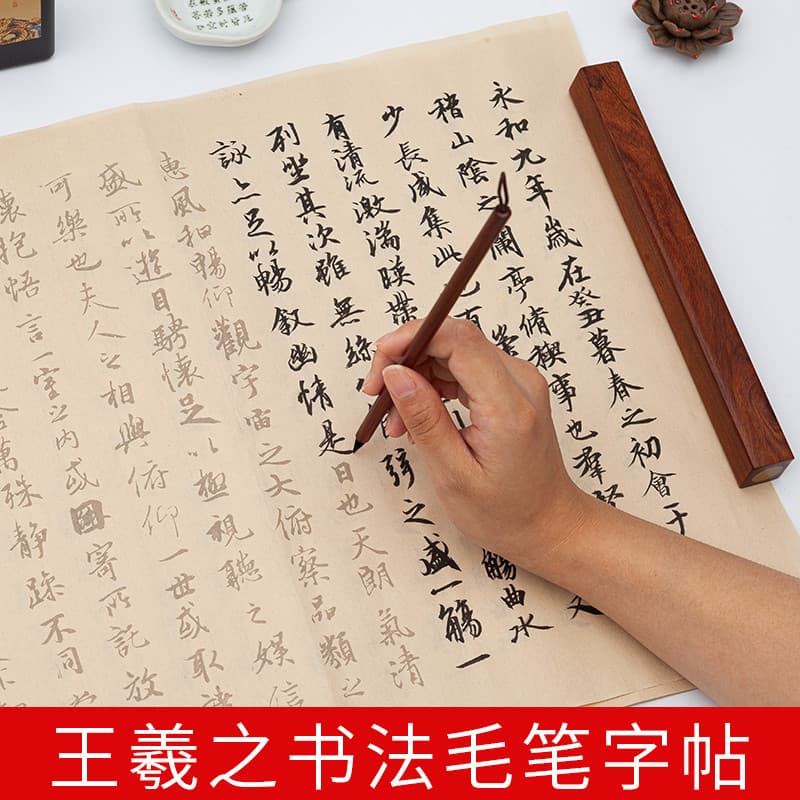 永和九年歲在癸丑暮春之初會于
稽山陰之蘭亭脩稧事也羣
少長咸集此有 又
有清流激湍暎帶 觴曲水
列坐其次雖無絲 弦之盛一觴一
詠亦足以暢敘幽情是日也天朗氣清
惠風和暢仰觀宇宙之大俯察品類之
盛所以遊目騁懷足以極視聽之娛信
可樂也夫人之相與俯仰一世或取諸
懷抱悟言一室之內或因寄所託放
萬殊靜躁不同
王羲之书法毛笔字帖